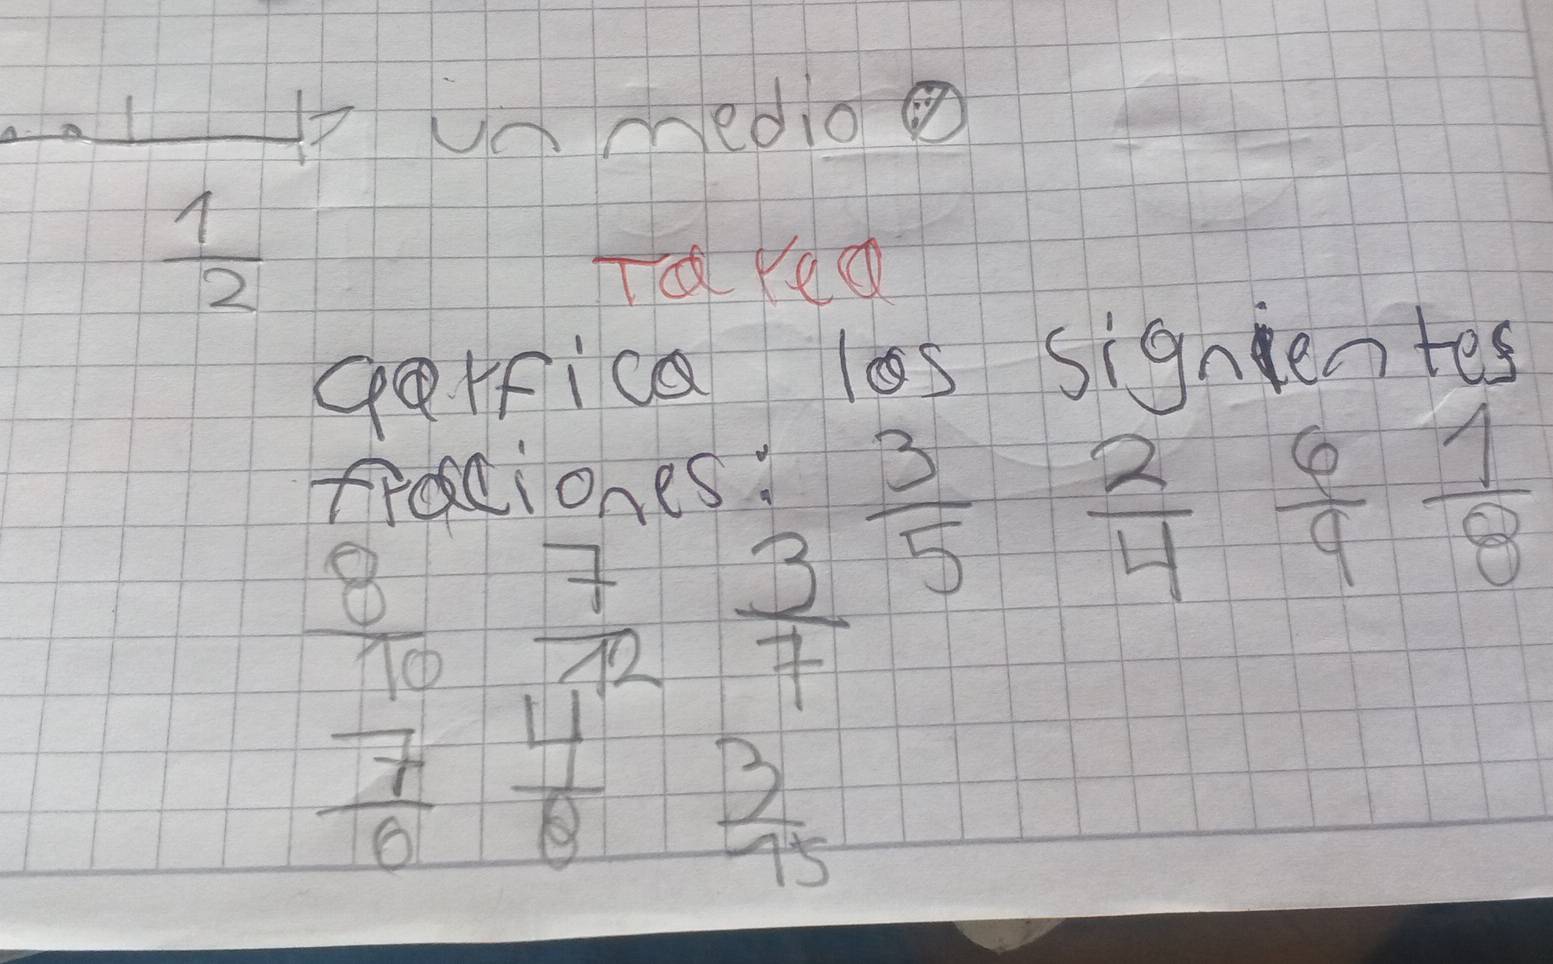 un medio
1/2
Tarea
Garfica las signientes
fracciones: 3/5 2/4 6/9 1/8
8/10 7/12 3/7
7/6 4/8 3/15